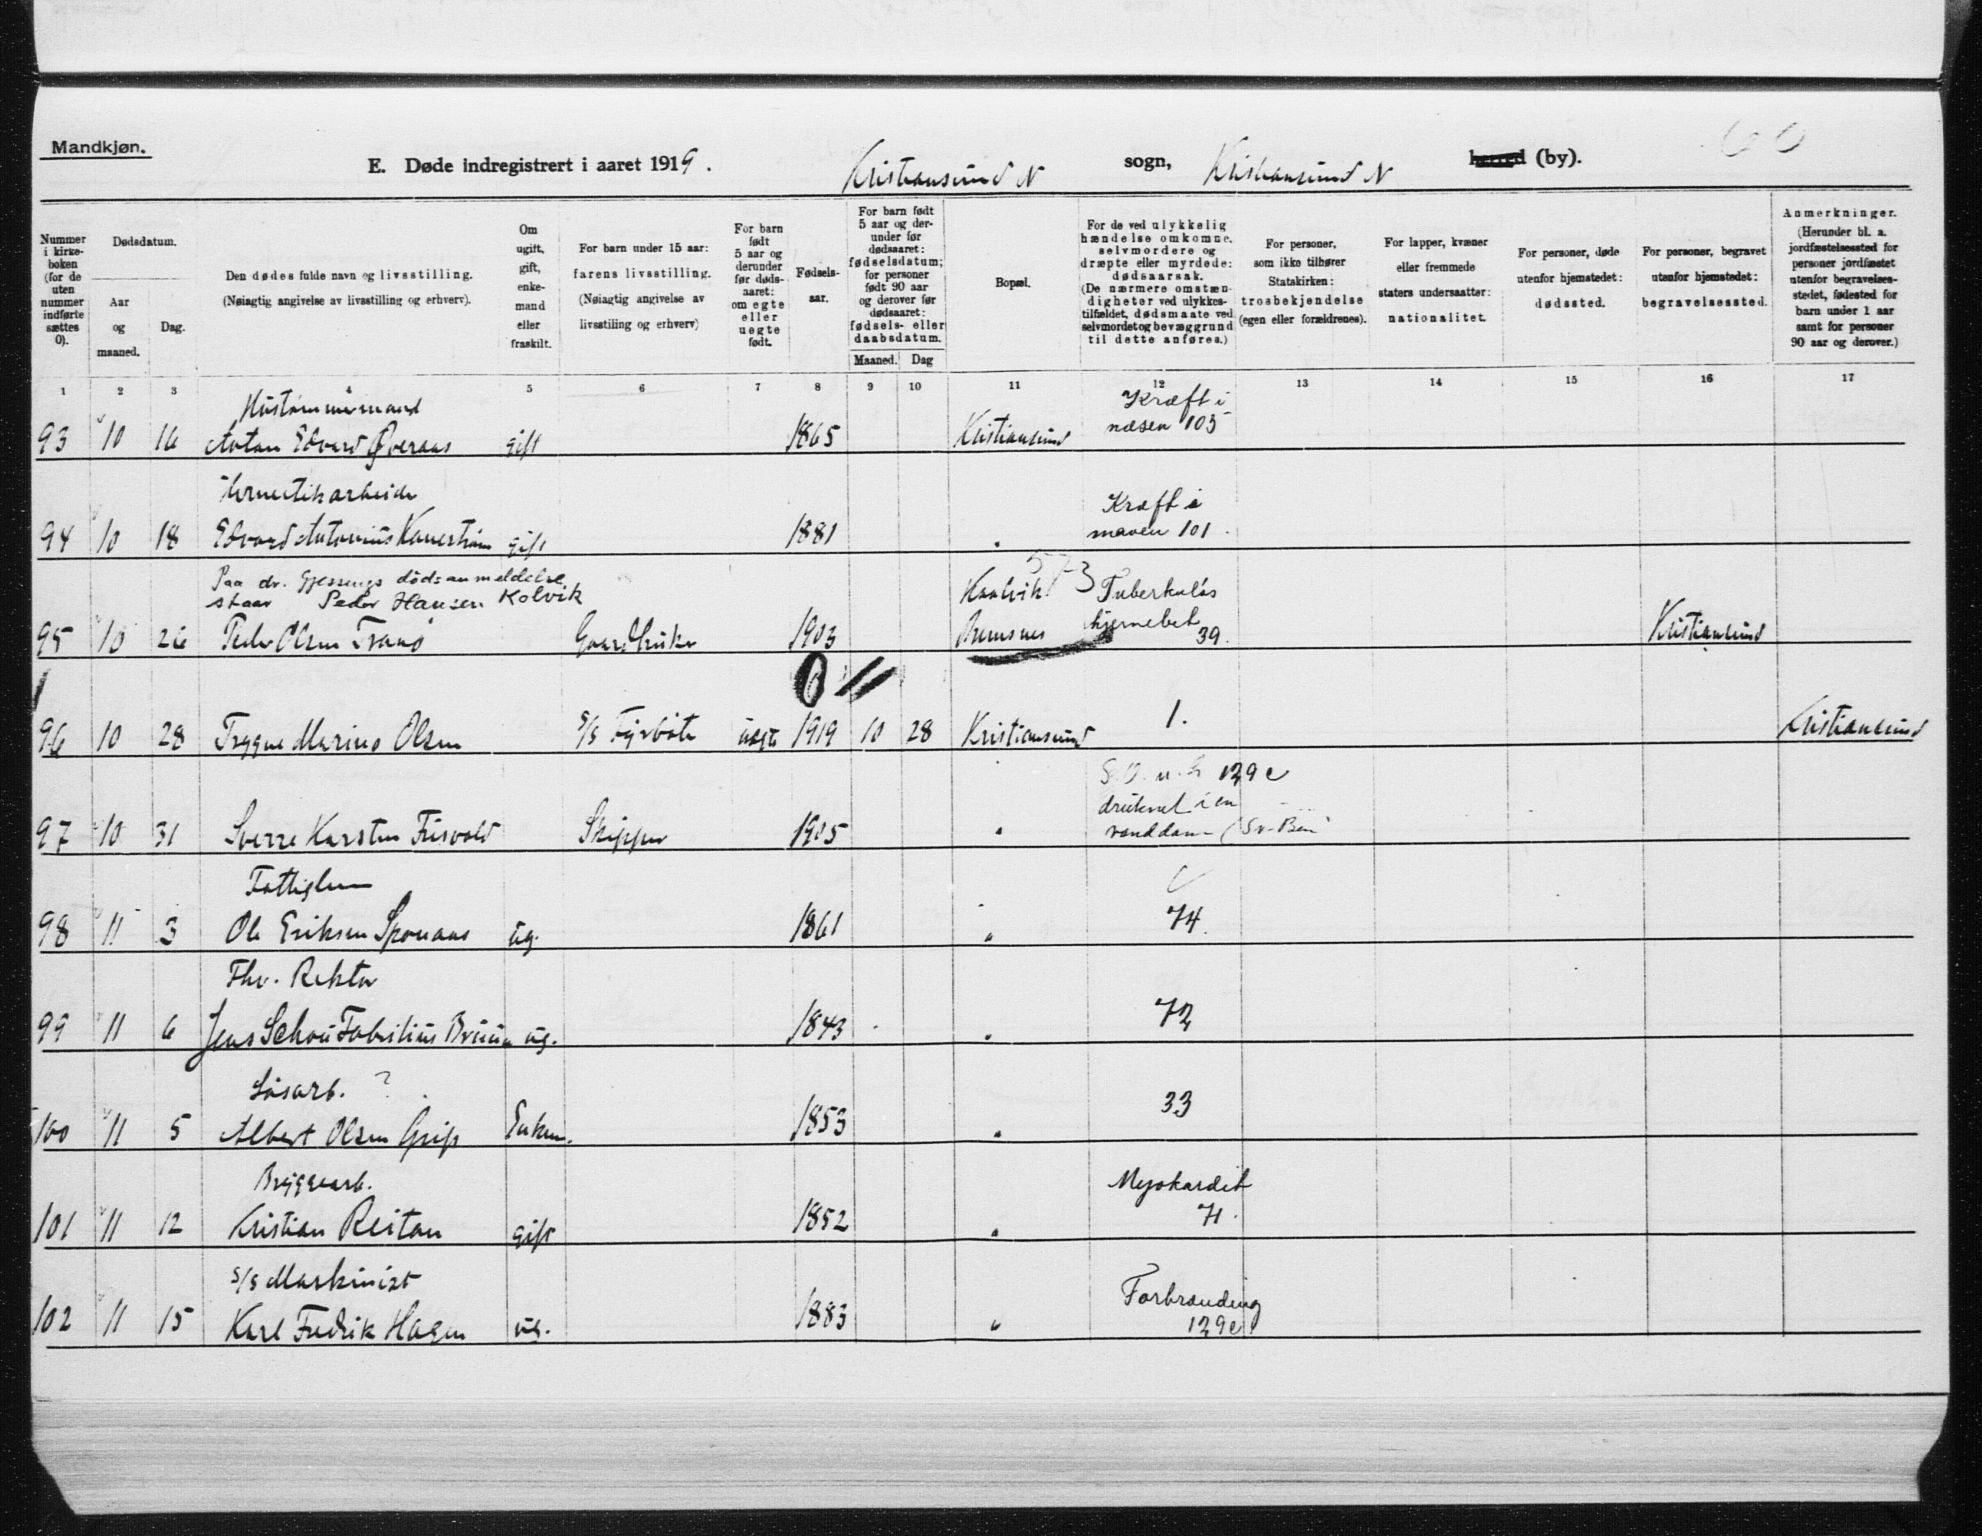 Mandkjøn.
E. Døde indregistrert i aaret 1919. Kristiansund N sogn, Kristiansund N herred (by).
Nummer i kirke-boken (for de uten nummer indførte sættes 0).
Dødsdatum.
Aar og maaned.
Dag.
Den dødes fulde navn og livsstilling.
(Nøiagtig angivelse av livsstilling og erhverv).
Om ugift, gift, enke-mand eller fraskilt.
For barn under 15 aar: farens livsstilling.
(Nøiagtig angivelse av livsstiling og erhverv)
For barn født 5 aar og derunder før døds-aaret: om egte eller uegte født.
Fødsels-aar.
For barn født 5 aar og der-under før dødsaaret: fødselsdatum; for personer født 90 aar og derover før dødsaaret: fødsels- eller daabsdatum.
Maaned. Dag
Bopæl.
For de ved ulykkelig hændelse omkomne, selvmordere og dræpte eller myrdede: dødsaarsak.
(De nærmere omstæn-digheter ved ulykkes-tilfældet, dødsmaate ved selvmordet og bevæggrund til dette anføres.)
For personer, som ikke tilhører Statskirken: trosbekjendelse (egen eller forældrenes).
For lapper, kvæner eller fremmede staters undersaatter: nationalitet.
For personer, døde utenfor hjemstedet: dødssted.
For personer, begravet utenfor hjemstedet: begravelsessted.
Anmerkninger.
(Herunder bl. a. jordfæstelsessted for personer jordfæstet utenfor begravelses-stedet, fødested for barn under 1 aar samt for personer 90 aar og derover.)
1 2 3 4 5 6 7 8 9 10 11 12 13 14 15 16 17
Hustømmermand Kræft i
93 10 16 Anton Edvard Øveraas gift 1865 Kristiansund næsen 103
Hermetikarbeider Kræft i
94 10 18 Edvard Antonius gift 1881 " maven 101.
Paa dr. Gjessings dødsanmeldelse 573
staar Peder Hansen Kolvik Kaalvik Tuberkuløs
95 10 26 Peder Olsen Gaardbruker 1903 Bremsnes hjernebet 39. Kristiansund
96 10 28 Trygve Marino Olsen s/s Fyrbøter uegte 1919 10 28 Kristiansund 1. Kristiansund
S.O.u.h 129 e
druknet i en
97 10 31 Sverre Karsten Frisvold Skipper 1905 " vanddam
Fattiglem
98 11 3 Ole Eriksen ug. 1861 " 74.
Fhv. Rektor
99 11 6 Jens Schou Fabritius Bruun ug. 1843 " 72
Løsarb. ?
100 11 5 Albert Olsen Grip Enkem. 1853 " 33
Bryggearb. Myokardit
101 11 12 Kristian Reitan gift 1852 " 71.
s/s Maskinist Forbrænding
102 11 15 Karl Fredrik Hagen ug. 1883 " 129e